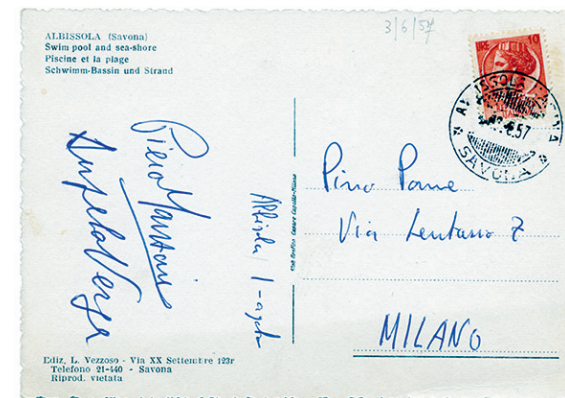 ALBISSOLA (Savona)
Swim pool and sea-shore
Piscine et la plage
Schwimm-Bassin und Strand
3/6/57
LIRE 10
ALBISSOLA MARINA
57
SAVONA
Piero Manzoni
Angelo Verga
Albisola 1 - agosto
Pino
Via Lentasio 7
MILANO
Ediz. L. Vezzoso - Via XX Settembre 123r
Telefono 21-440 - Savona
Riprod. vietata